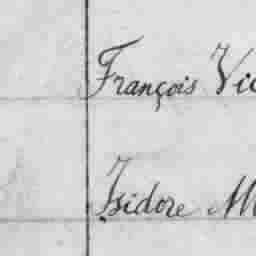 François Vic
Isidore M